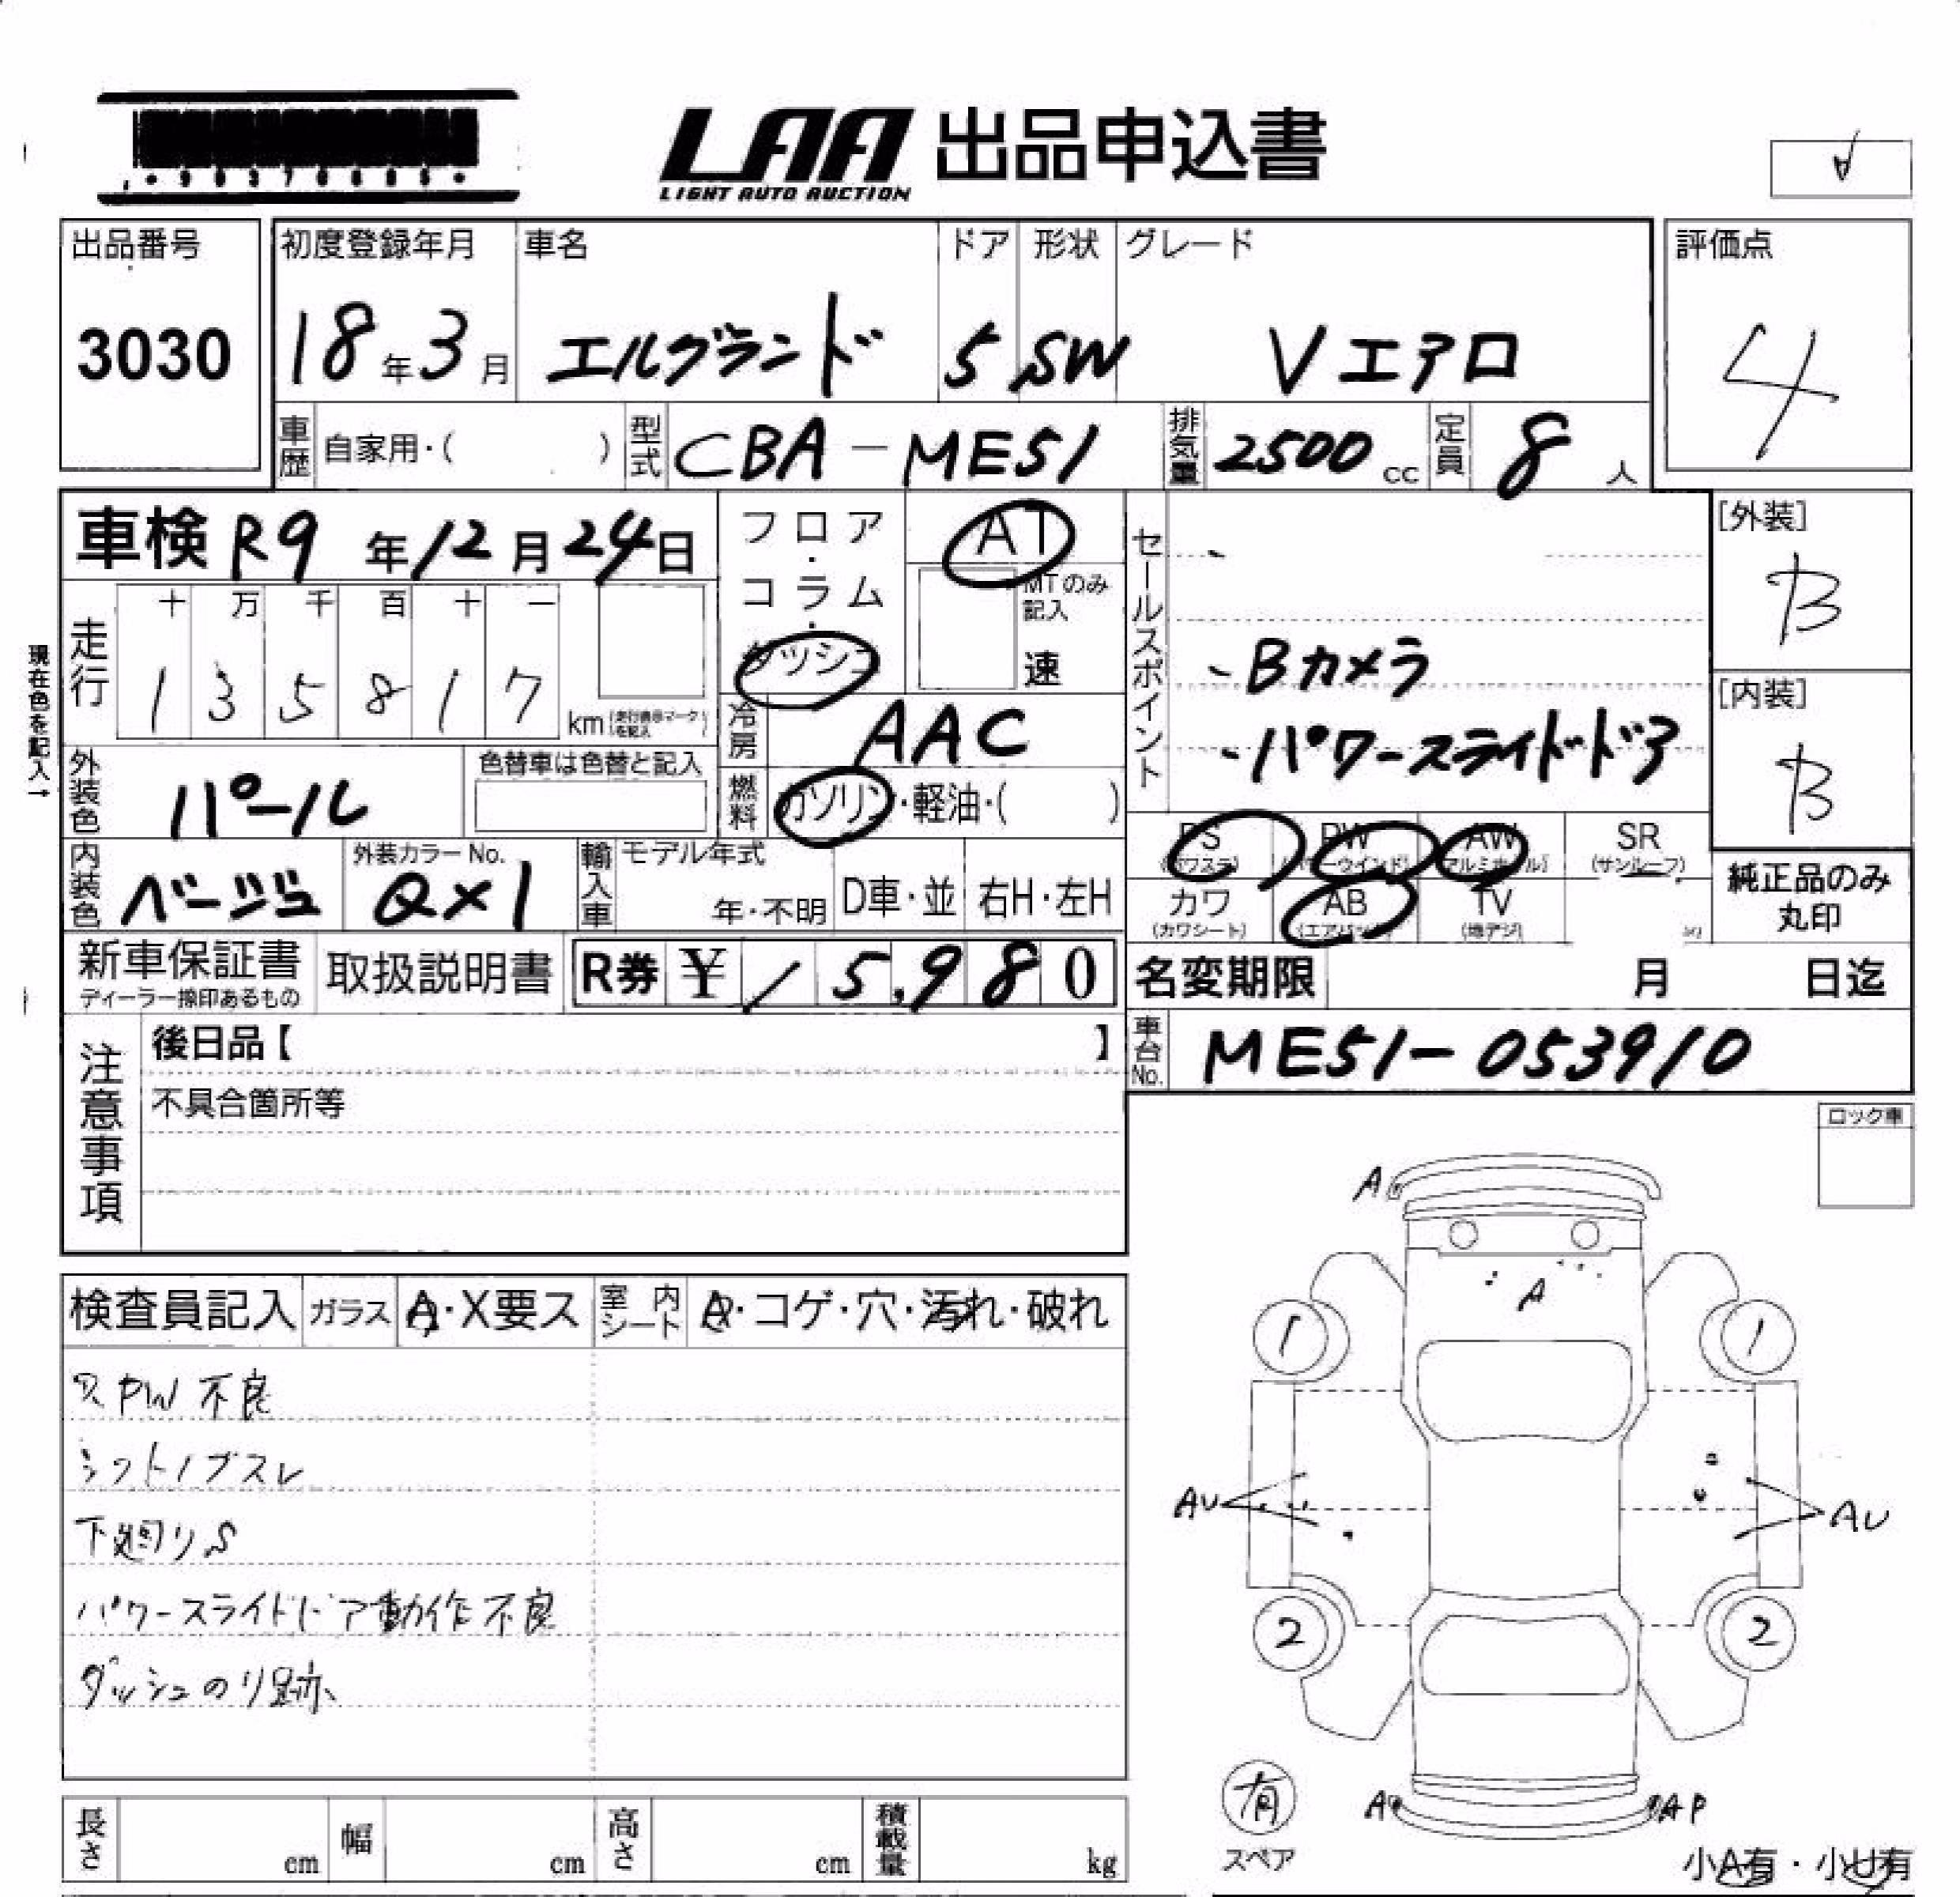 LAA 出品申込書
LIGHT AUTO AUCTION
出品番号
3030
初度登録年月
18年3月
車名
エルグランド
ドア
5
形状
SW
グレード
Vエアロ
評価点
4
車歴 自家用・( )
型式 CBA-ME51
排気量 2500 cc
定員 8 人
車検 R9年12月24日
フロア・コラム・ダッシュ
AT
MTのみ記入
速
走行
十 万 千 百 十 一
1 3 5 8 1 7 km
現在色を記入→
冷房 AAC
外装色 パール
色替車は色替と記入
燃料 ガソリン・軽油・( )
内装色 ベージュ
外装カラーNo.
QX1
輸入車
モデル年式
年・不明
D車・並
右H・左H
新車保証書
取扱説明書
R券 ¥ / 5,980
セールスポイント
、Bカメラ
、パワースライドドア
PS (パワステ)
PW (パワーウインド)
AW (アルミホイル)
SR (サンルーフ)
カワ (カワシート)
AB (エアバッグ)
TV (地デジ)
[外装]
B
[内装]
B
純正品のみ丸印
名変期限 月 日迄
車台No. ME51-053910
注意事項
後日品【 】
不具合箇所等
ロック車
検査員記入
ガラス A・X要ス
室内シート A・コゲ・穴・汚れ・破れ
PW不良
シフトノブスレ
下廻りS
パワースライドドア動作不良
ダッシュのり跡
A
A
1
1
AU
AU
2
2
有
スペア
A
AP
小A有・小U有
長さ cm
幅 cm
高さ cm
積載量 kg